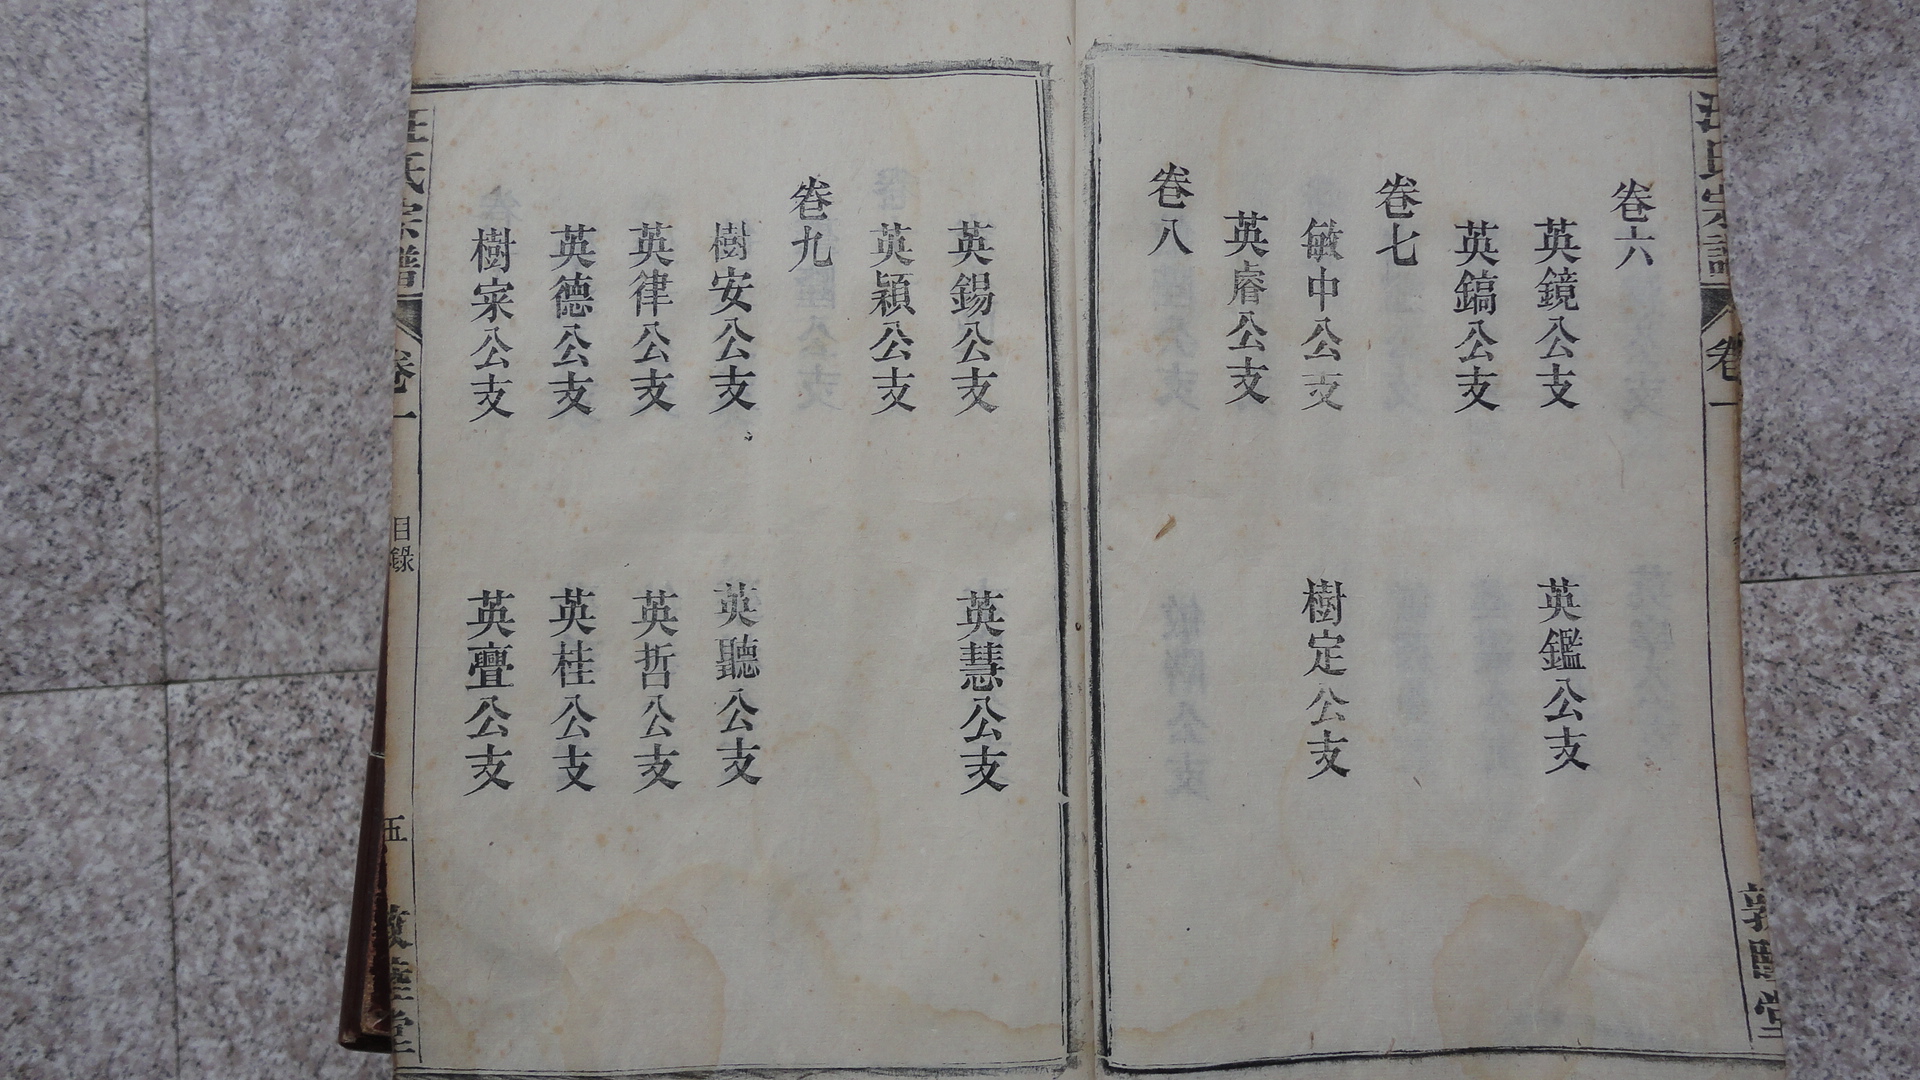 汪氏宗譜 卷一
卷六
英鏡公支 英鑑公支
英鎬公支
卷七
敏中公支 樹定公支
英睿公支
卷八
英錫公支 英慧公支
英穎公支
卷九
樹安公支 英聽公支
英律公支 英哲公支
英德公支 英桂公支
樹宋公支 英亹公支
汪氏宗譜 卷一 目錄 五 敦睦堂